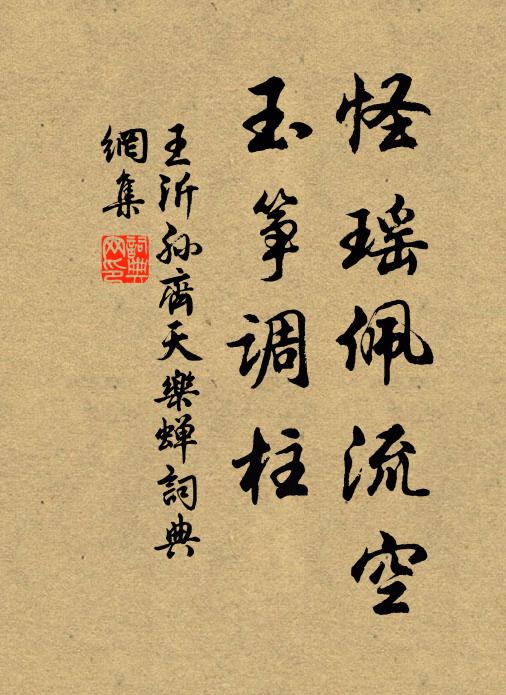 怪瑶佩流空
玉筝调柱
王沂孙齊天樂蝉詞典
網集
詞典网印